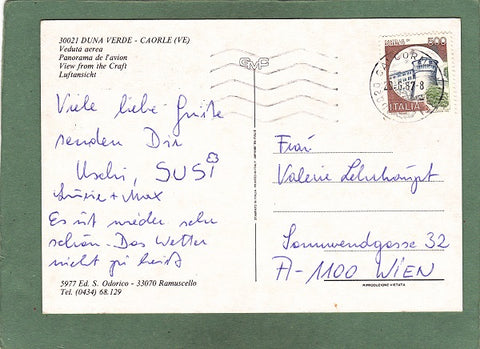 30021 DUNA VERDE - CAORLE (VE)
Veduta aerea
Panorama de l'avion
View from the Craft
Luftansicht
Viele liebe Grüße
senden Dir
Uschi, SUSI
+ Max
Es ist wieder sehr
schön. Das Wetter
nicht zu heiß
5977 Ed. S. Odorico - 33070 Ramuscello
Tel. (0434) 68.129
500
ITALIA
Frau
Valerie Lehrhaupt
Sonnwendgasse 32
A-1100 WIEN
RIPRODUZIONE VIETATA